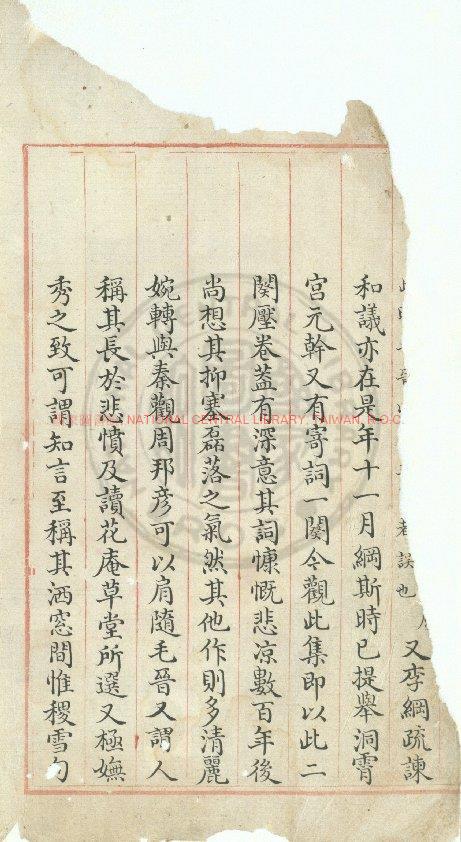 考誤也
又李綱疏諫
和議亦在是年十一月綱斯時已提舉洞霄
宮元幹又有寄詞一闋今觀此集即以此二
闋壓卷蓋有深意其詞慷慨悲凉數百年後
尚想其抑塞磊落之氣然其他作則多清麗
婉轉與秦觀周邦彥可以肩隨毛晉又謂人
稱其長於悲憤及讀花庵草堂所選又極嫵
秀之致可謂知言至稱其洒窓間惟稷雪句
NATIONAL CENTRAL LIBRARY, TAIWAN, R.O.C.